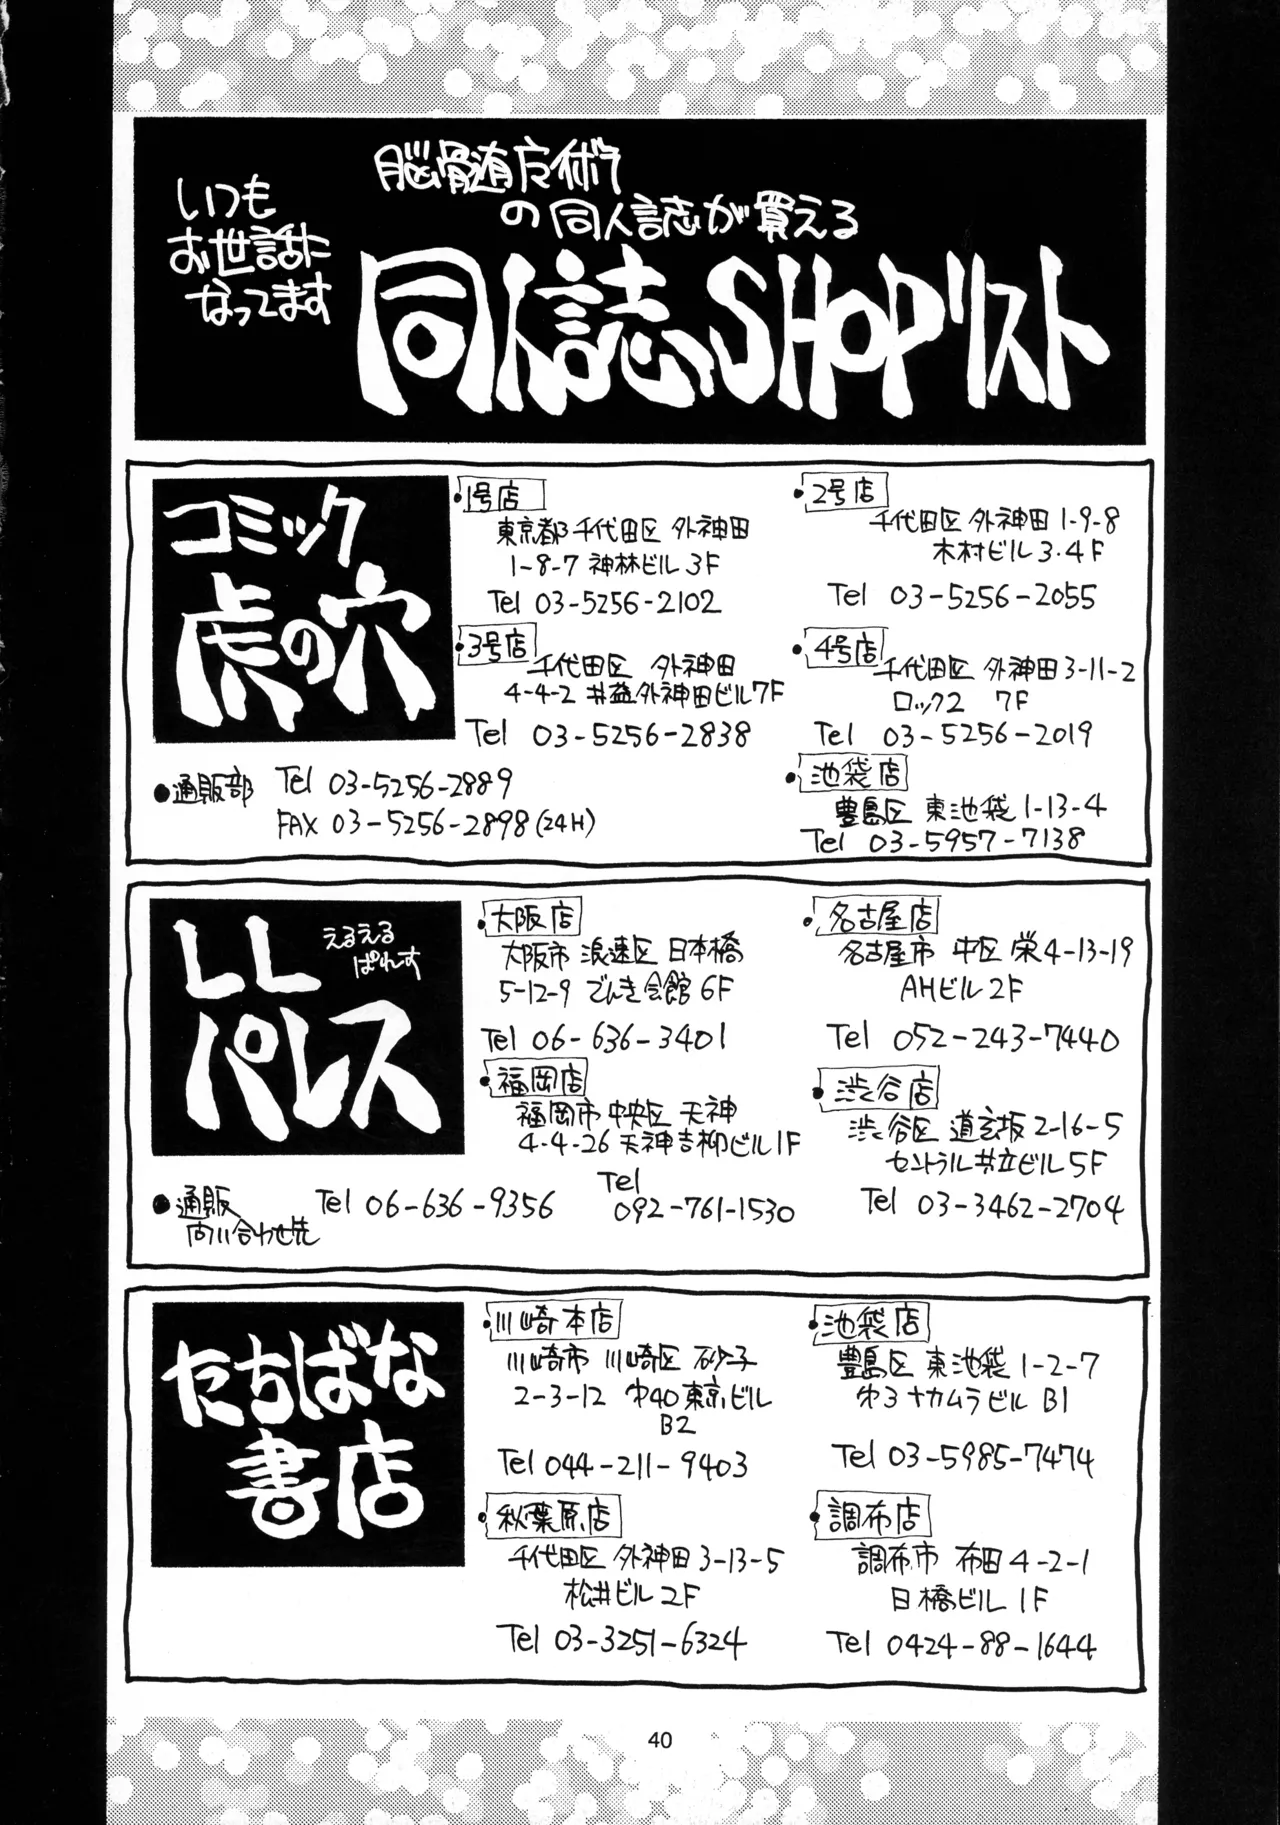 いつも
お世話に
なってます
脳髄魔術
の同人誌が買える
同人誌SHOPリスト
コミック
虎の穴
1号店
東京都千代田区 外神田
1-8-7 神林ビル 3F
Tel 03-5256-2102
2号店
千代田区 外神田 1-9-8
木村ビル 3・4F
Tel 03-5256-2055
3号店
千代田区 外神田
4-4-2 井益外神田ビル7F
Tel 03-5256-2838
4号店
千代田区 外神田3-11-2
ロック2 7F
Tel 03-5256-2019
池袋店
豊島区 東池袋1-13-4
Tel 03-5957-7138
通販部 Tel 03-5256-2889
FAX 03-5256-2898(24H)
LL
えるえる
ぱれす
パレス
大阪店
大阪市 浪速区 日本橋
5-12-9 でんき会館 6F
Tel 06-636-3401
名古屋店
名古屋市 中区 栄4-13-19
AHビル 2F
Tel 052-243-7440
福岡店
福岡市 中央区 天神
4-4-26 天神吉柳ビル1F
Tel
092-761-1530
渋谷店
渋谷区 道玄坂2-16-5
セントラル井立ビル5F
Tel 03-3462-2704
通販 Tel 06-636-9356
問い合わせ先
たちばな
書店
川崎本店
川崎市 川崎区 砂子
2-3-12 第40東京ビル
B2
Tel 044-211-9403
池袋店
豊島区 東池袋 1-2-7
第3ナカムラビル B1
Tel 03-5985-7474
秋葉原店
千代田区 外神田3-13-5
松井ビル 2F
Tel 03-3251-6324
調布店
調布市 布田4-2-1
日橋ビル 1F
Tel 0424-88-1644
40